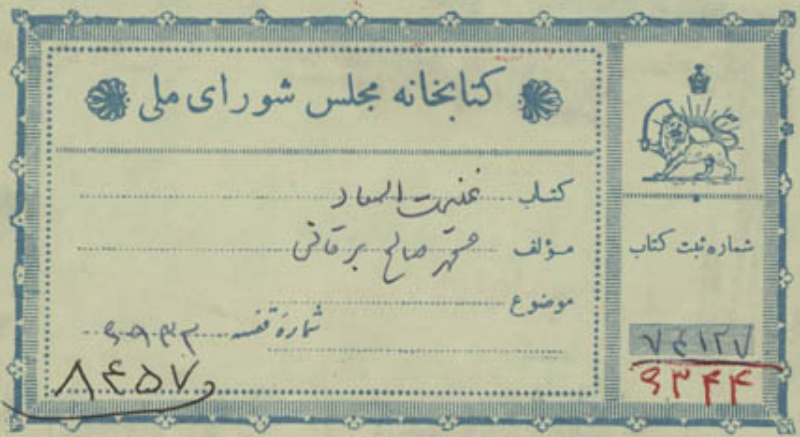 کتابخانه مجلس شورای ملی
کتاب غنیمت المعاد
مؤلف محمد صالح برقانی
موضوع
شماره قفسه
۸۴۵۷
شماره ثبت کتاب
۷۴۱۲۷
۹۳۴۴